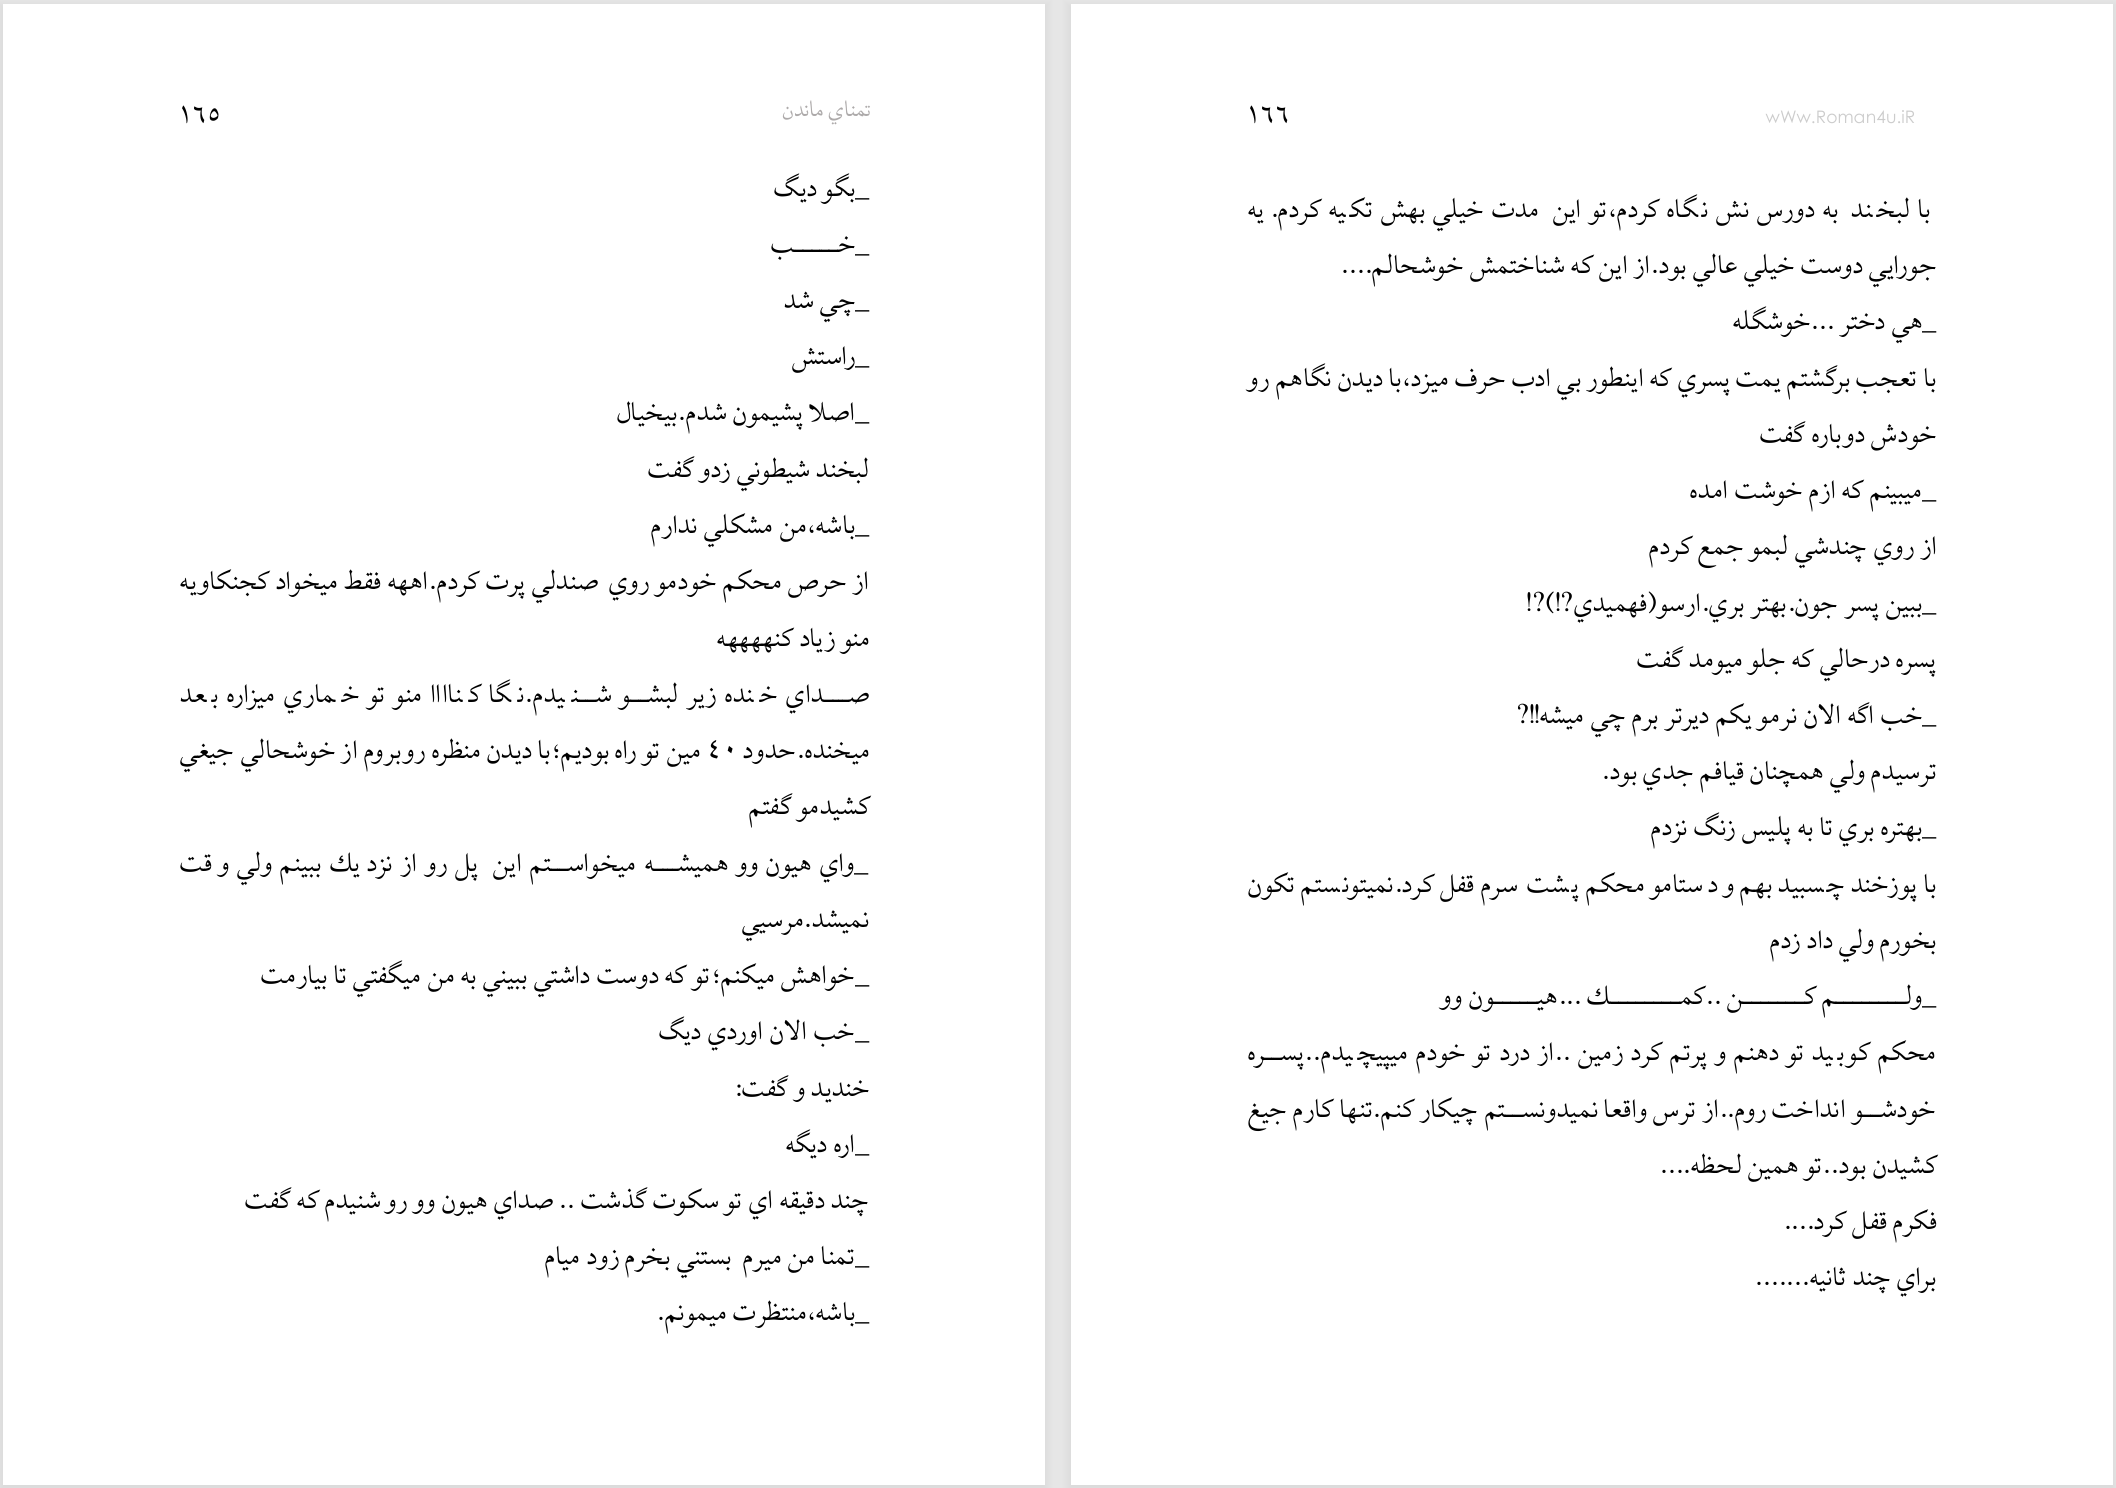 تمناي ماندن
١٦٥
_بگو ديگ
_خـــــــب
_چي شد
_راستش
_اصلا پشيمون شدم.بيخيال
لبخند شيطوني زدو گفت
_باشه،من مشكلي ندارم
از حرص محكم خودمو روي صندلي پرت كردم.اههه فقط ميخواد كجنكاويه
منو زياد كنهههههه
صــــداي خنده زير لبشــــو شــــنيدم.نگا كناااا منو تو خماري ميزاره بعد
ميخنده.حدود ٤٠ مين تو راه بوديم؛با ديدن منظره روبروم از خوشحالي جيغي
كشيدمو گفتم
_واي هيون وو هميشــــه ميخواســــتم اين پل رو از نزد يك ببينم ولي و قت
نميشد.مرسيي
_خواهش ميكنم؛تو كه دوست داشتي ببيني به من ميگفتي تا بيارمت
_خب الان اوردي ديگ
خنديد و گفت:
_اره ديگه
چند دقيقه اي تو سكوت گذشت .. صداي هيون وو رو شنيدم كه گفت
_تمنا من ميرم بستني بخرم زود ميام
_باشه،منتظرت ميمونم.
١٦٦
wWw.Roman4u.iR
با لبخند به دورس نش نگاه كردم،تو اين مدت خيلي بهش تكيه كردم. يه
جورايي دوست خيلي عالي بود.از اين كه شناختمش خوشحالم....
_هي دختر ...خوشگله
با تعجب برگشتم يمت پسري كه اينطور بي ادب حرف ميزد،با ديدن نگاهم رو
خودش دوباره گفت
_ميبينم كه ازم خوشت امده
از روي چندشي لبمو جمع كردم
_ببين پسر جون.بهتر بري.ارسو(فهميدي?!)?!
پسره درحالي كه جلو ميومد گفت
_خب اگه الان نرمو يكم ديرتر برم چي ميشه!!?
ترسيدم ولي همچنان قيافم جدي بود.
_بهتره بري تا به پليس زنگ نزدم
با پوزخند چسبيد بهم و د ستامو محكم پشت سرم قفل كرد.نميتونستم تكون
بخورم ولي داد زدم
_ولـــــــــم كـــــــــن ..كمـــــــــك ...هيـــــــون وو
محكم كوبيد تو دهنم و پرتم كرد زمين ..از درد تو خودم ميپيچيدم..پســــره
خودشــــو انداخت روم..از ترس واقعا نميدونســــتم چيكار كنم.تنها كارم جيغ
كشيدن بود..تو همين لحظه....
فكرم قفل كرد....
براي چند ثانيه.......